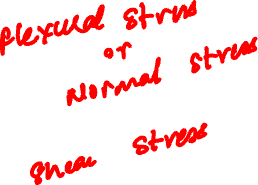 Flexural Stress
or
Normal Stress
Shear Stress